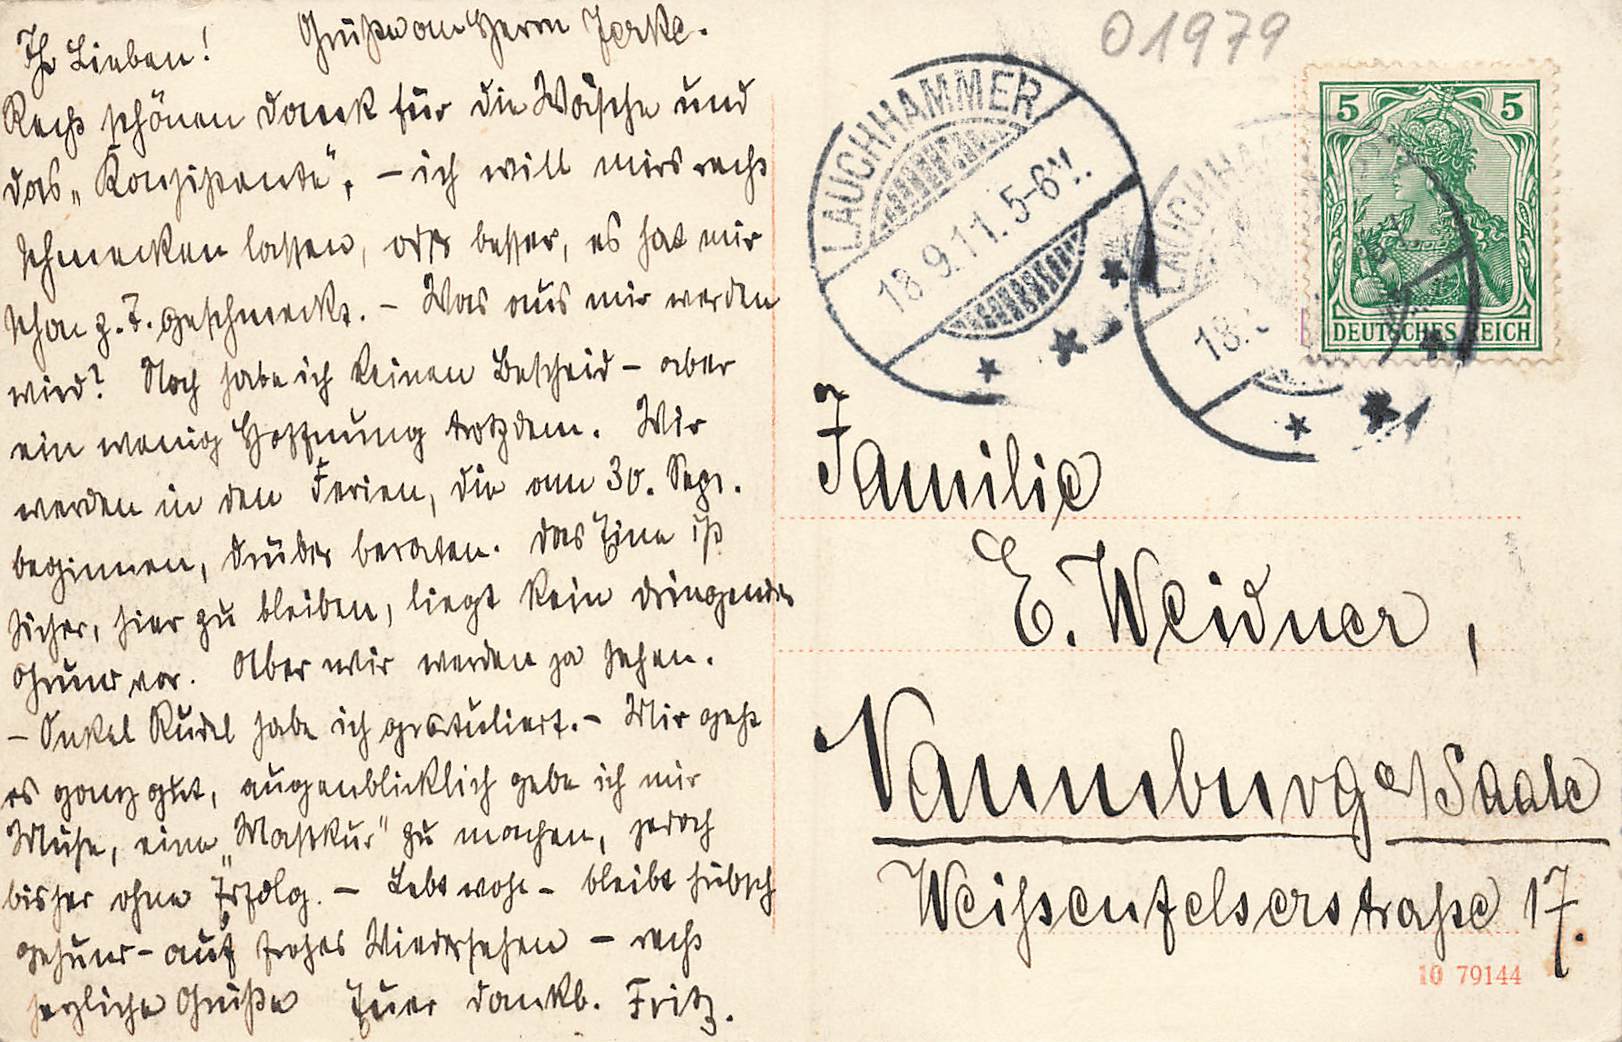 Ihr Lieben! Grüße an Herrn Jerke.
Recht schönen Dank für die Wäsche und
das „Konsistente“, – ich will mirs recht
schmecken lassen, oder besser, es hat mir
schon z. T. geschmeckt. – Was aus mir werden
wird? Noch habe ich keinen Bescheid – aber
ein wenig Hoffnung trotzdem. Wir
werden in den Ferien, die am 30. Sept.
beginnen, drüber beraten. Das Eine ist
sicher, hier zu bleiben, liegt kein dringender
Grund vor. Aber wir werden ja sehen.
– Onkel Rudel habe ich gratuliert. – Mir geht
es ganz gut, augenblicklich gebe ich mir
Mühe, eine „Mastkur“ zu machen, jedoch
bisher ohne Erfolg. – Lebt wohl – bleibt hübsch
gesund – auf frohes Wiedersehen – recht
herzliche Grüße Euer dankb. Fritz.
01979
LAUCHHAMMER
18.9.11. 5-6N.
LAUCHHA
18.
5 5
DEUTSCHES REICH
Familie
E. Weidner,
Naumburg a/Saale
Weißenfelserstraße 17.
10 79144